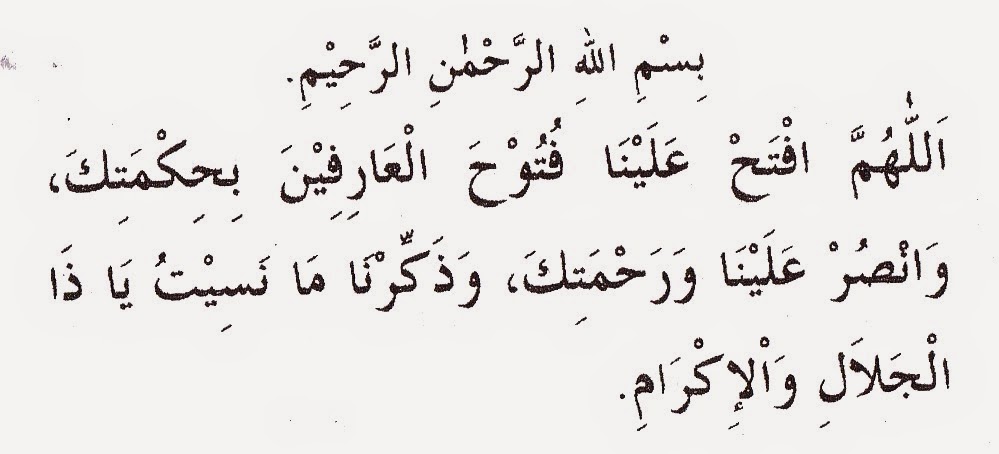 بِسْمِ اللهِ الرَّحْمٰنِ الرَّحِيْمِ.
اَللّٰهُمَّ افْتَحْ عَلَيْنَا فُتُوْحَ الْعَارِفِيْنَ بِحِكْمَتِكَ،
وَانْصُرْ عَلَيْنَا وَرَحْمَتِكَ، وَذَكِّرْنَا مَا نَسِيْتُ يَا ذَا
الْجَلاَلِ وَاْلإِكْرَامِ.